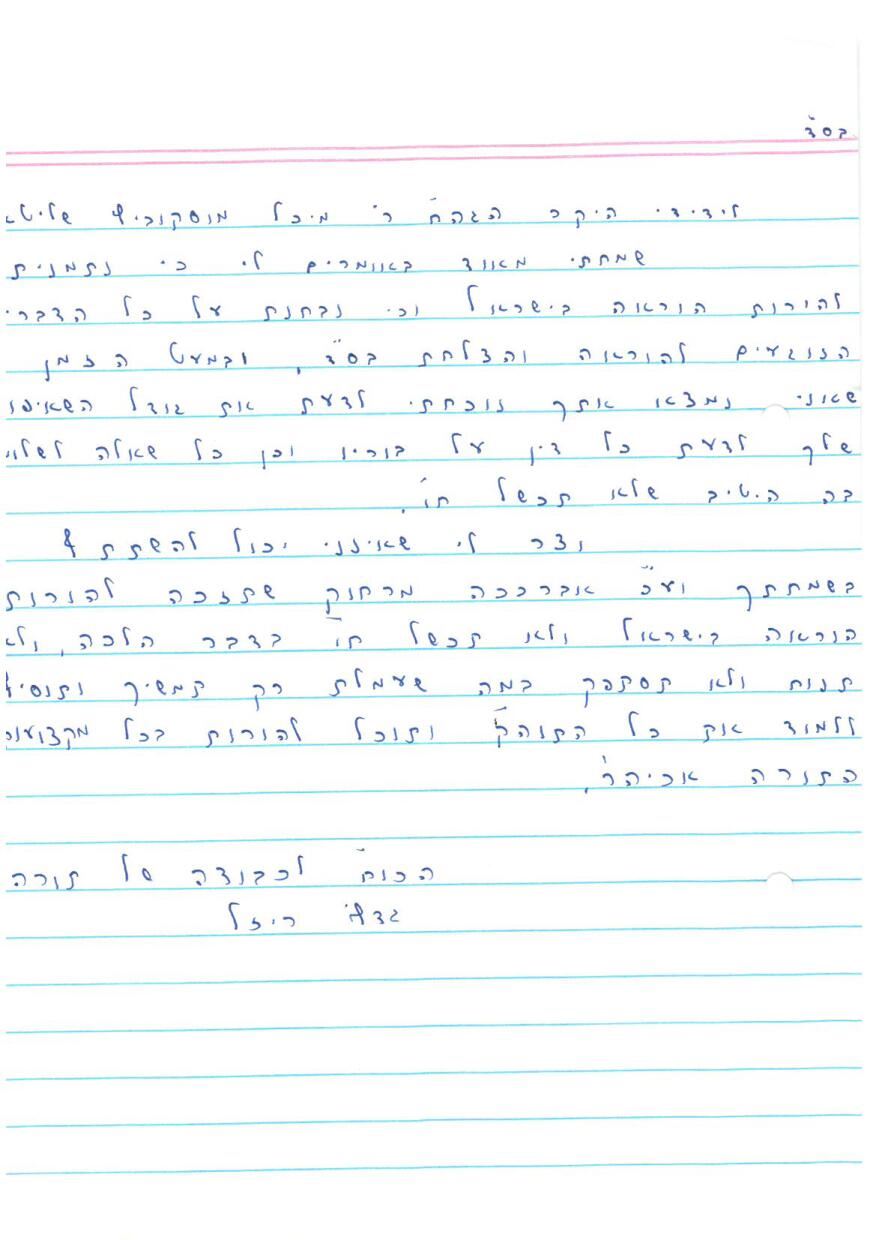 בס״ד
לידידי היקר הגה״ח ר' מיכל מוסקוביץ שליטא
שמחתי מאוד באומרים לי כי נתמנית
להירות הוראה בישראל וכי נבחנת על כל הדברי
הנוגעים להוראה והצלחת בס״ד, ובמעט הזמן
שאני נמצא אתך נוכחתי לדעת את גודל השאיפו
שלך לדעת כל דין על בוריו וכן כל שאלה
בה היטיב שלא תכשל ח״ו.
וצר לי שאינני יכול להשתתף
בשמחתך וע״כ אברככה מרחוק שתזכה להורות
הוראה בישראל ולא תכשל ח״ו בדבר הלכה, ולא
תנוח ולא תסתפק במה שעמלת רק תמשיך ותוסיף
ללמוד את כל התוה״ק ותוכל להורות בכל מקצועו
התורה אכיה״ר.
הכו״ח לכבודה של תורה